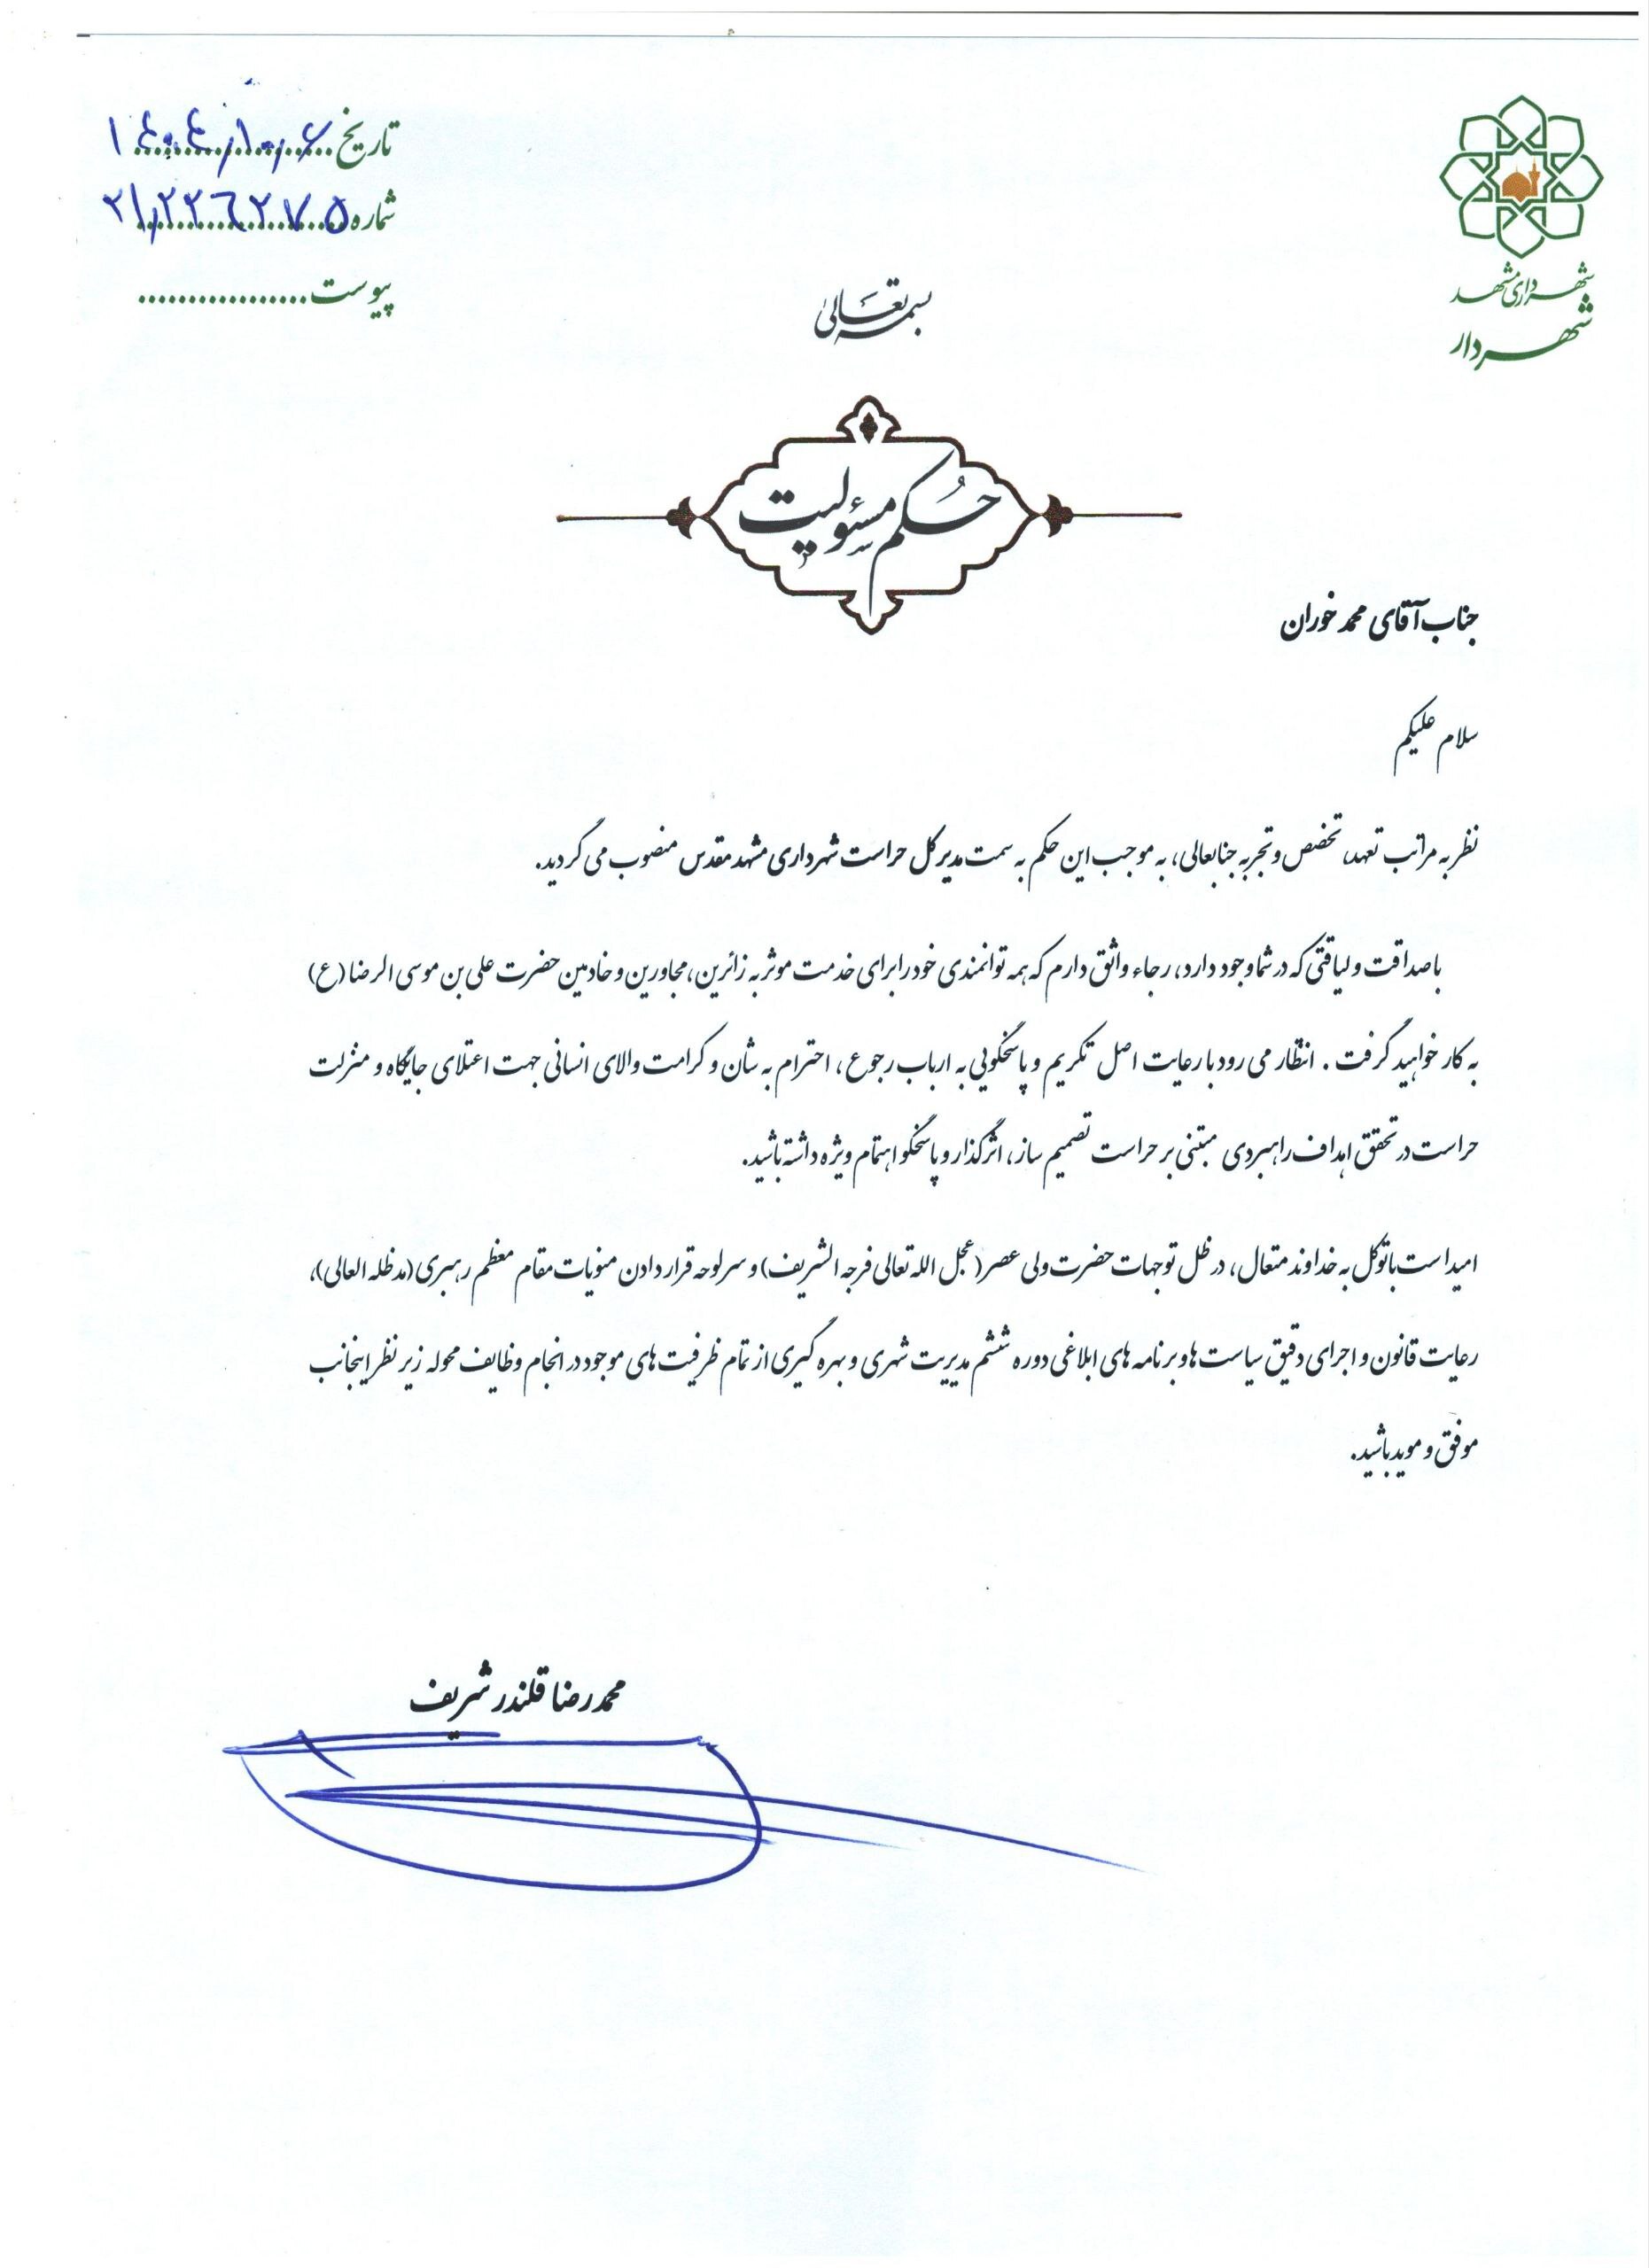 تاریخ ۱۴۰۴/۱۰/۶
شماره ۲۱/۲۲۶۲۷۵
پیوست ................
شهرداری مشهد
شهردار
بسمه تعالی
حکم مسئولیت
جناب آقای محمد خوران
سلام علیکم
نظر به مراتب تعهد، تخصص و تجربه جنابعالی، به موجب این حکم به سمت مدیر کل حراست شهرداری مشهد مقدس منصوب می گردید.
با صداقت و لیاقتی که در شما وجود دارد، رجاء واثق دارم که همه توانمندی خود را برای خدمت موثر به زائرین، مجاورین و خادمین حضرت علی بن موسی الرضا (ع)
به کار خواهید گرفت . انتظار می رود با رعایت اصل تکریم و پاسخگویی به ارباب رجوع ، احترام به شان و کرامت والای انسانی جهت اعتلای جایگاه و منزلت
حراست در تحقق اهداف راهبردی مبتنی بر حراست تصمیم ساز، اثرگذار و پاسخگو اهتمام ویژه داشته باشید.
امید است با توکل به خداوند متعال، در ظل توجهات حضرت ولی عصر (عجل الله تعالی فرجه الشریف) و سرلوحه قرار دادن منویات مقام معظم رهبری (مدظله العالی)،
رعایت قانون و اجرای دقیق سیاست ها و برنامه های ابلاغی دوره ششم مدیریت شهری و بهره گیری از تمام ظرفیت های موجود در انجام وظایف محوله زیر نظر اینجانب
موفق و موید باشید.
محمدرضا قلندر شریف